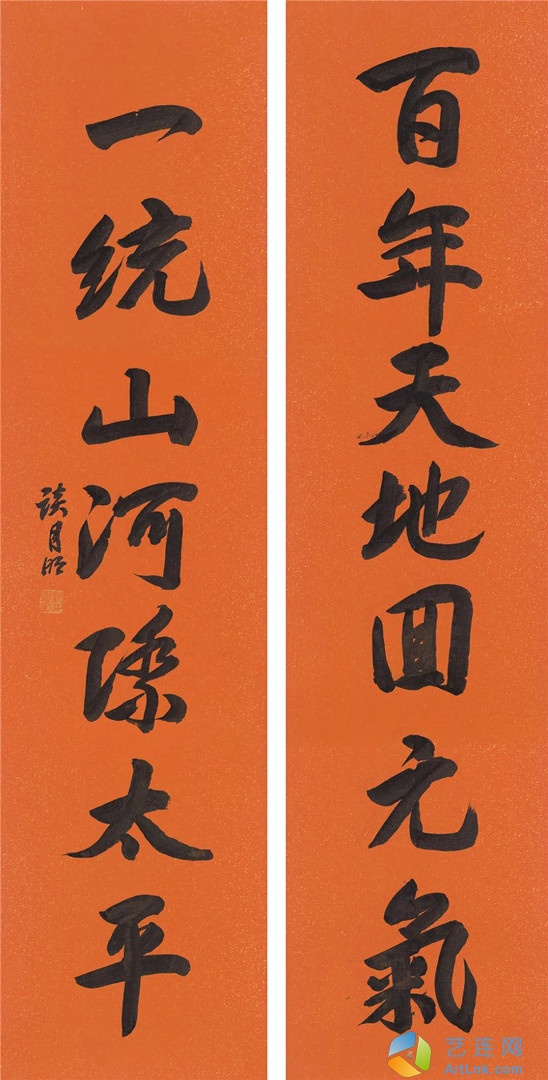 百年天地回元氣
一統山河際太平
談月
艺连网
ArtLnk.com